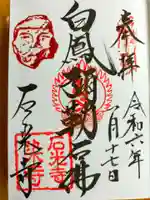 奉拝
令和六年
一月十七日
白鳳弥勒石佛
石光寺
石光寺